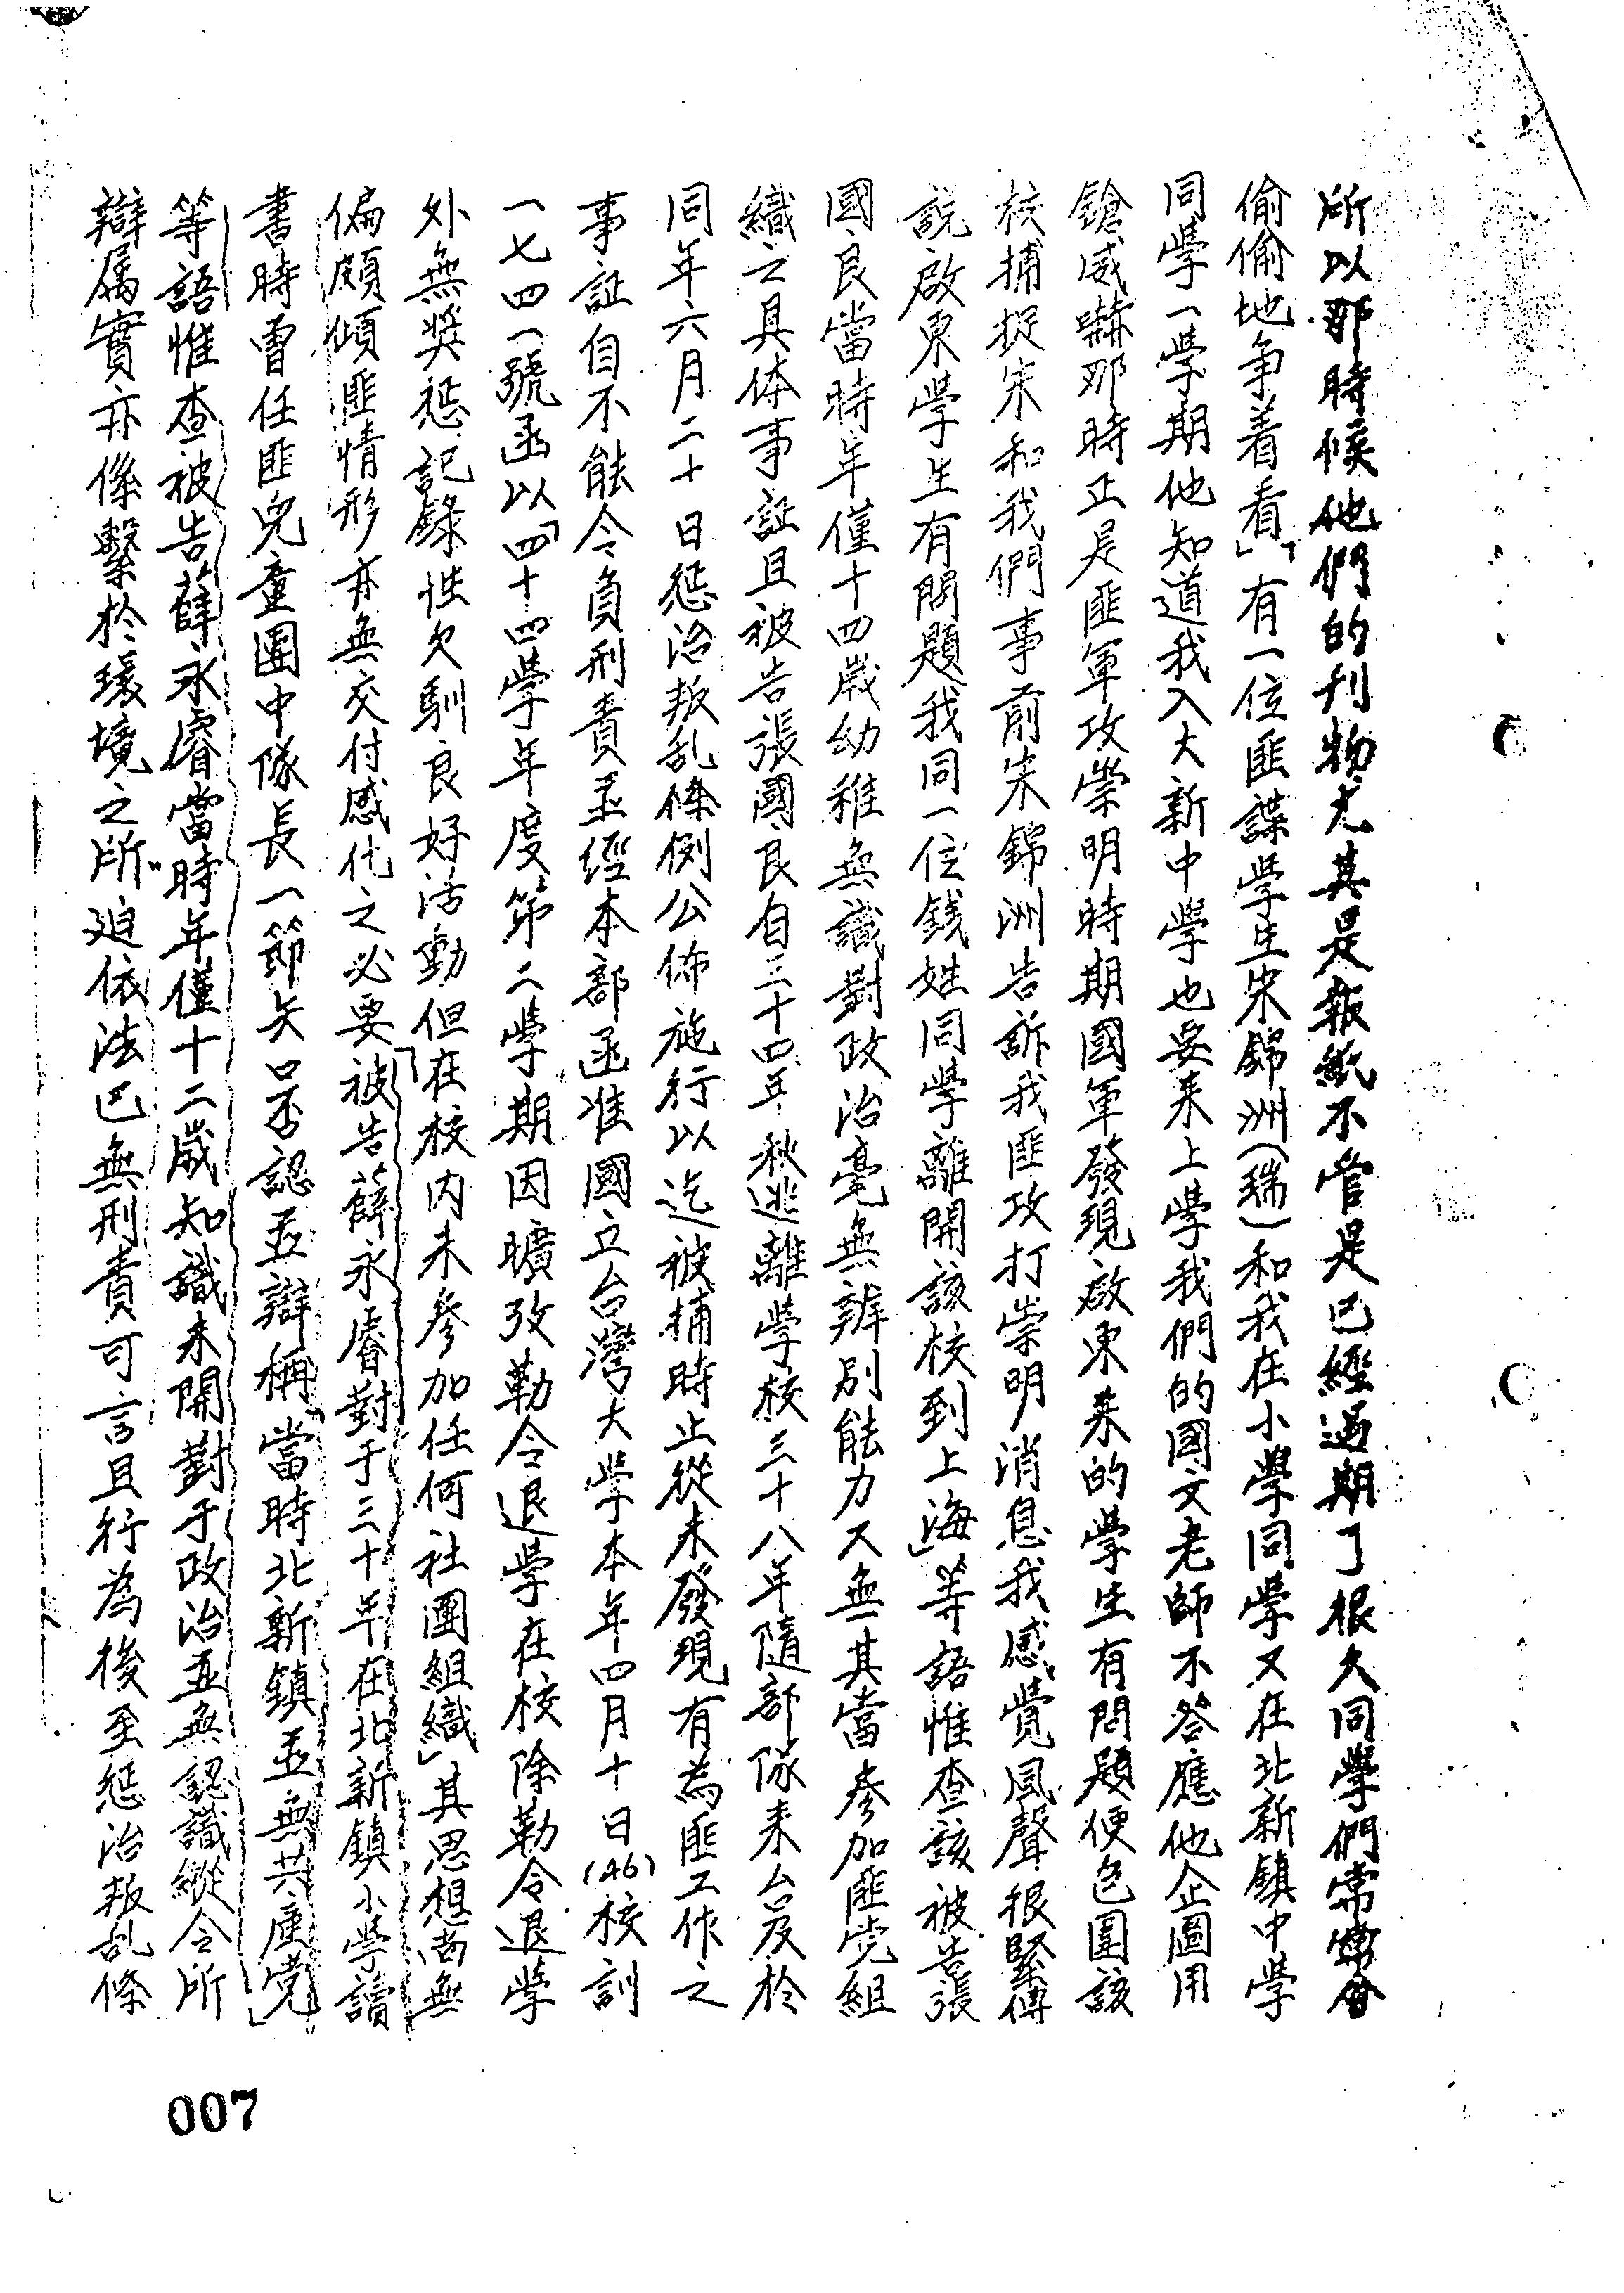 所以那時候他們的刊物尤其是報紙不管是已經過期了很久同學們常常會
偷偷地争着看」「有一位匪諜學生宋錦洲(瑞)和我在小學同學又在北新鎮中學
同學一學期他知道我入大新中學也要来上學我們的國文老師不答應他企圖用
鎗威嚇那時正是匪軍攻崇明時期國軍發現啟東来的學生有問題便包圍該
校捕捉宋和我們事前宋錦洲告訴我匪攻打崇明消息我感覺風聲很緊傳
説啟東學生有問題我同一位錢姓同學離開該校到上海」等語惟查該被告張
國良當時年僅十四歲幼稚無識對政治毫無辨別能力又無其當参加匪党組
織之具体事証且被告張國良自三十四年秋逃離學校三十八年隨部隊来台及於
同年六月二十日惩治叛乱條例公佈施行以迄被捕時止從未發現有為匪工作之
事証自不能令負刑責並經本部函准國立台灣大学本年四月十日(46)校訓
一七四一號函以「四十四學年度第二學期因曠攷勒令退學在校除勒令退學
外無奬惩記錄性欠馴良好活動但在校内未參加任何社團組織」其思想尚無
偏頗傾匪情形亦無交付感化之必要「被告薛永睿對于三十年在北新鎮小学讀
書時曾任匪兒童團中隊長一節矢口否認並辯稱「當時北新鎮並無共産党」
等語惟查被告薛永睿當時年僅十二歲知識未開對于政治並無認識縱令所
辯属實亦係繫於環境之所迫依法已無刑責可言且行為後至惩治叛乱條
007